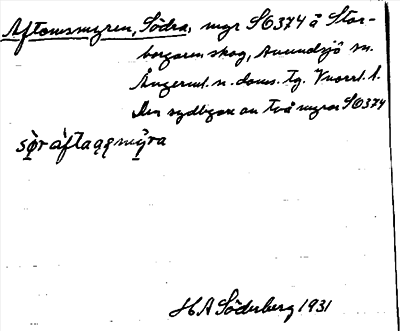 Aftonsmyren, Södra, myr SO374 å Stor-
borgaren skog, Anundsjö sn.
Ångerml. n. doms. tg. Vnorrl. l.
Den sydligare av två myrar SO374
sø̀r áfta
H A Söderberg 1931